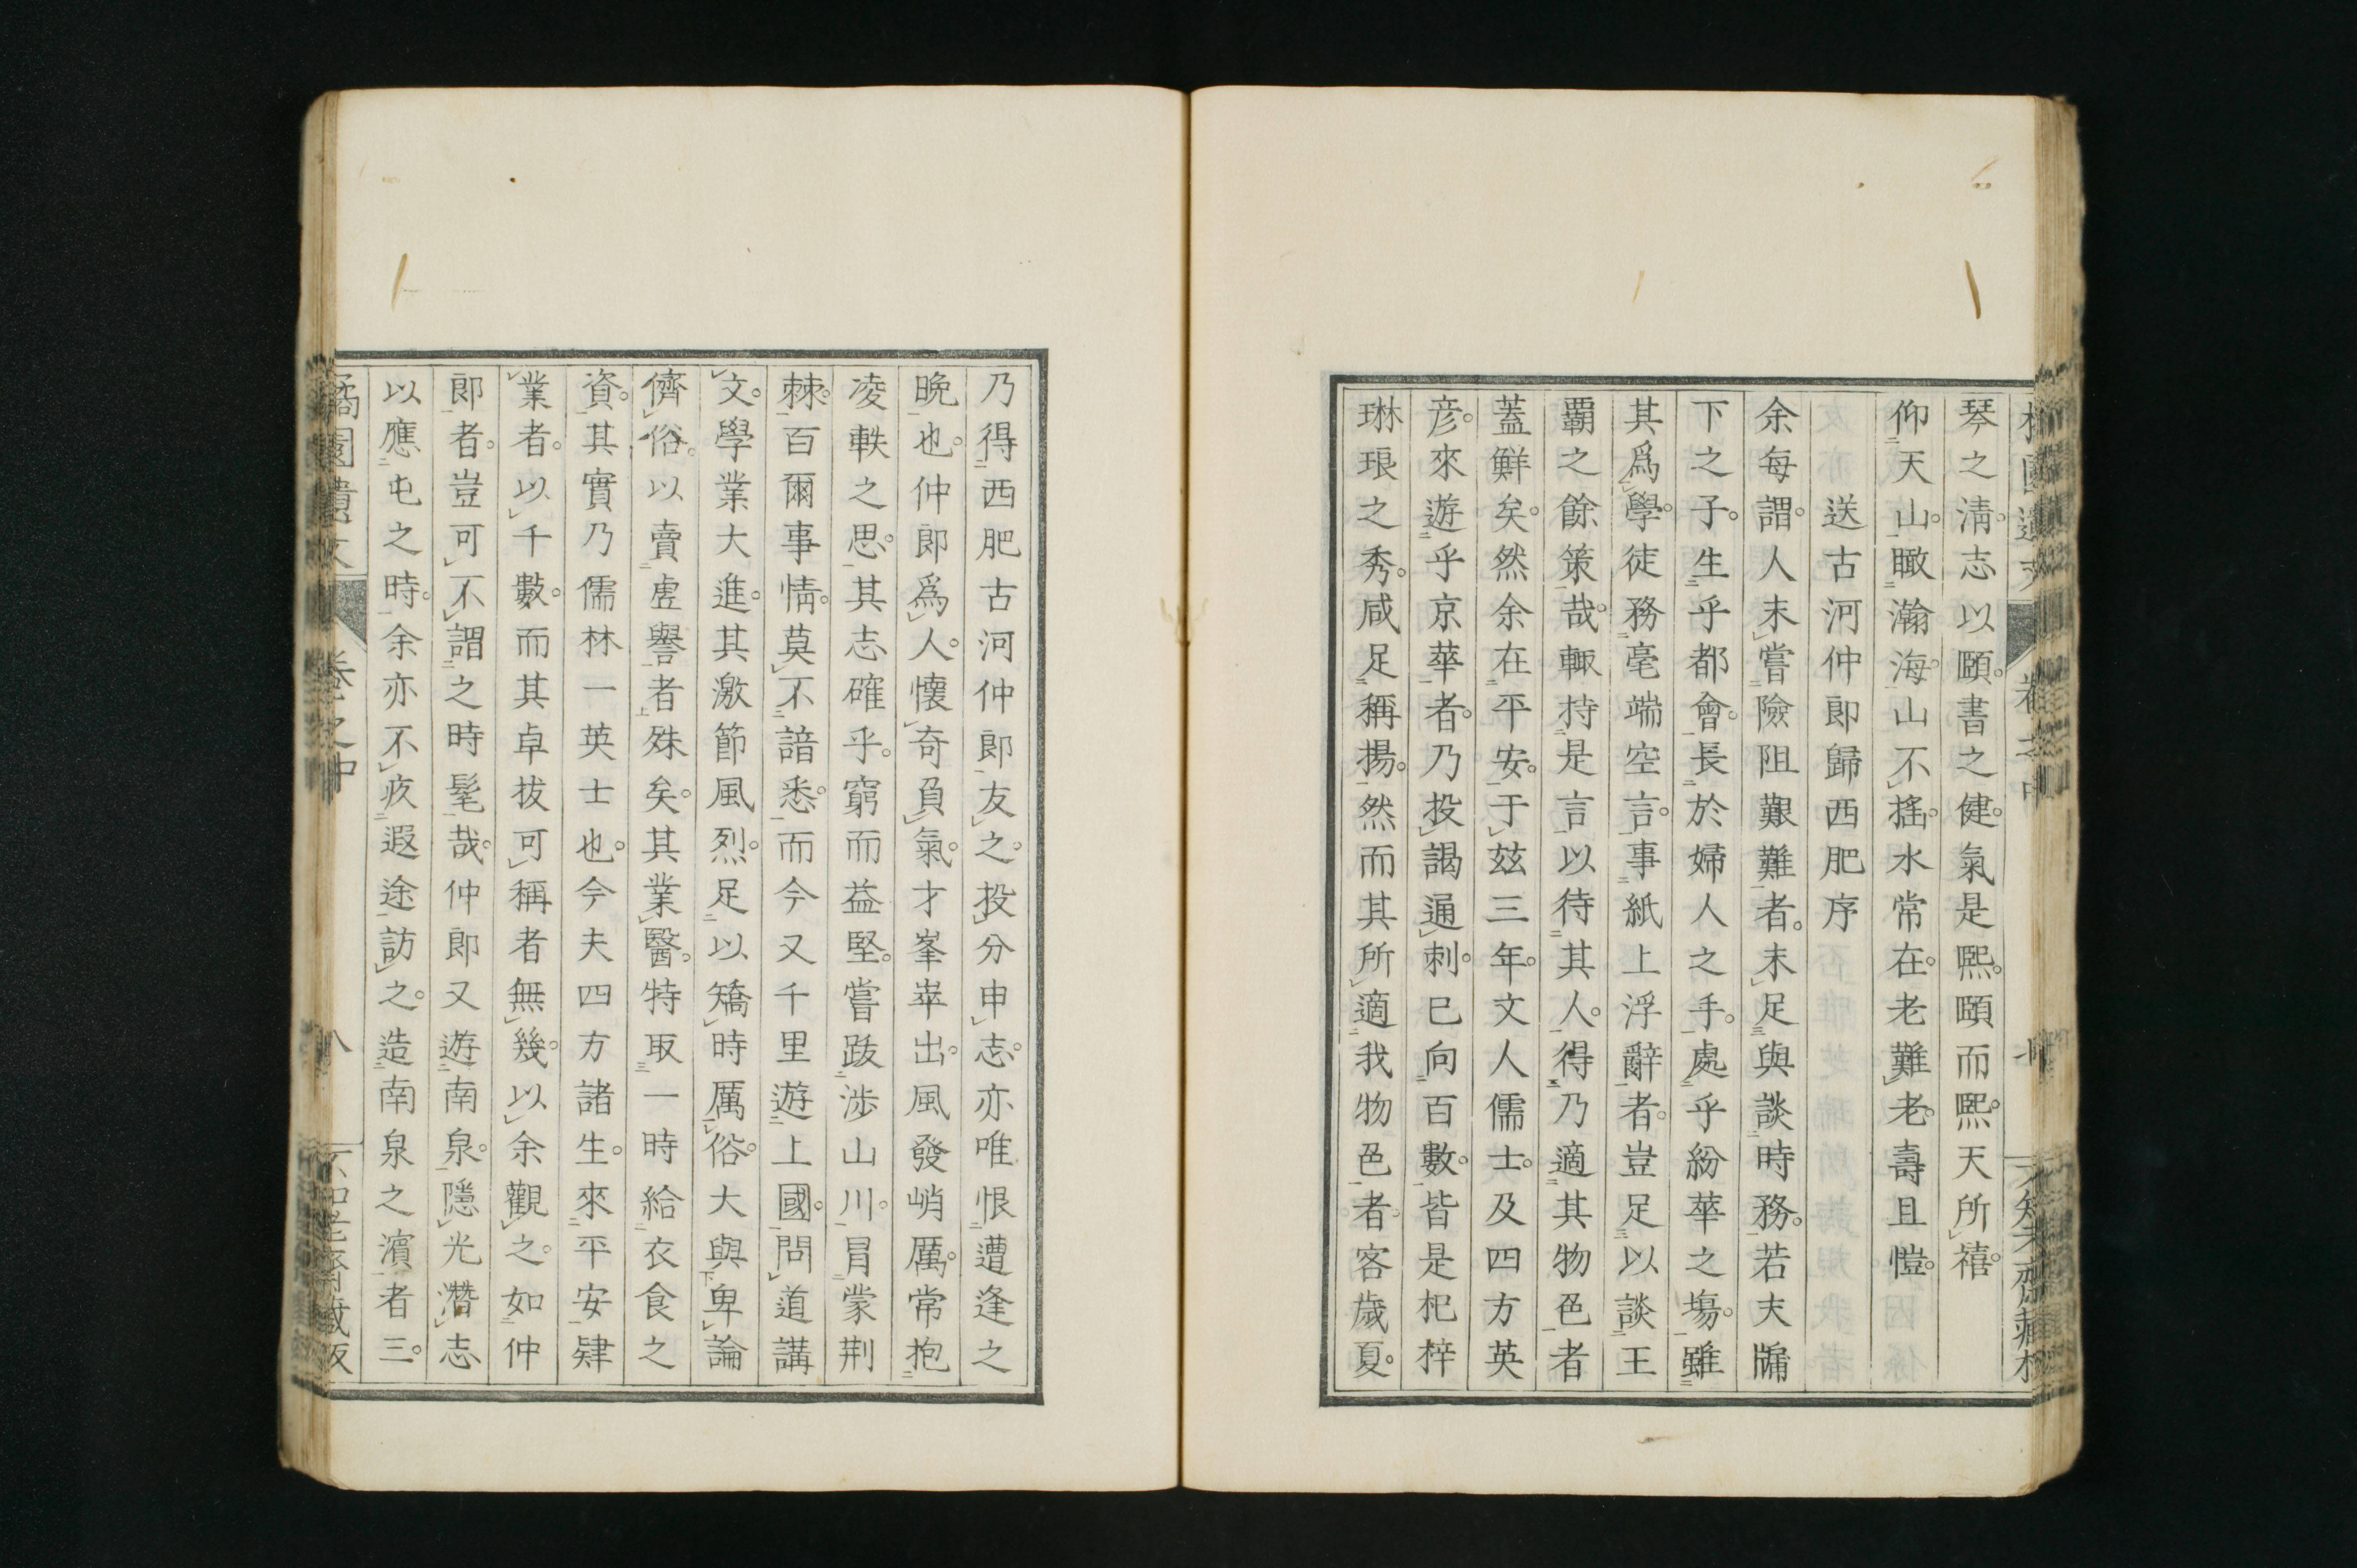 琴之淸。志以頤。書之健。氣是熙。熙頤而熙。天所禧。
仰天山。瞰瀚海。山不搖。水常在。老難老。壽且愷。
送古河仲郎歸西肥序
余每謂。人未嘗險阻艱難者。未足與談時務。若夫牖
下之子。生乎都會。長於婦人之手。處乎紛華之場。雖
其爲學。徒務毫端空言。事紙上浮辭者。豈足以談王
霸之餘策哉。輙持是言以待其人。得乃適其物色者
蓋鮮矣。然余在平安。于玆三年。文人儒士。及四方英
彦。來遊乎京華者。乃投謁通刺。已向百數。皆是杞梓
琳琅之秀。咸足稱揚。然而其所適我物色者。客歲夏。
乃得西肥古河仲郎友之。投分申志。亦唯恨遭逢之
晚也。仲郎爲人。懷奇負氣。才峯崒出。風發峭厲。常抱
凌軼之思。其志確乎。窮而益堅。嘗跋涉山川。冒蒙荆
棘。百爾事情。莫不諳悉。而今又千里遊上國。問道講
文。學業大進。其激節風烈。足以矯時厲俗。大與卑論
儕俗。以賣虛譽者殊矣。其業醫。特取一時給衣食之
資。其實乃儒林一英士也。今夫四方諸生。來平安肄
業者。以千數。而其卓拔可稱者無幾。以余觀之。如仲
郎者。豈可不謂之時髦哉。仲郎又遊南泉。隱光潛志
以應屯之時。余亦不疚遐途訪之。造南泉之濱者三。
橘園遺文 卷之中 八